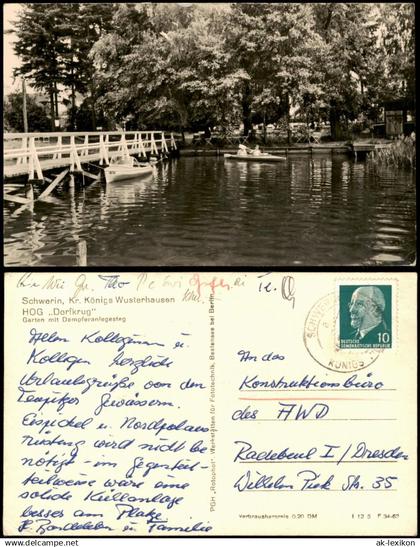 Schwerin, Kr. Königs Wusterhausen
HOG „Dorfkrug"
Garten mit Dampferanlegesteg
Allen Kolleginnen u.
Kollegen herzliche
Urlaubsgrüße von den
Teupitzer Gewässern.
Eispickel u. Nordpolaus
rüstung wird nicht be
nötigt - im Gegenteil
teilweise wäre eine
solide Kühlanlage
besser am Platze.
und Familie
PGH „Rotophot", Werkstätten für Fototechnik, Bestensee bei Berlin
SCHWERIN
KÖNIGS
10
DEUTSCHE
DEMOKRATISCHE REPUBLIK
An das
Konstruktionsbüro
des AWD
Radebeul I/Dresden
Wilhelm Piek Str. 35
Verbraucherpreis 0,20 DM
ak-lexikon
© ak-lexikon.com